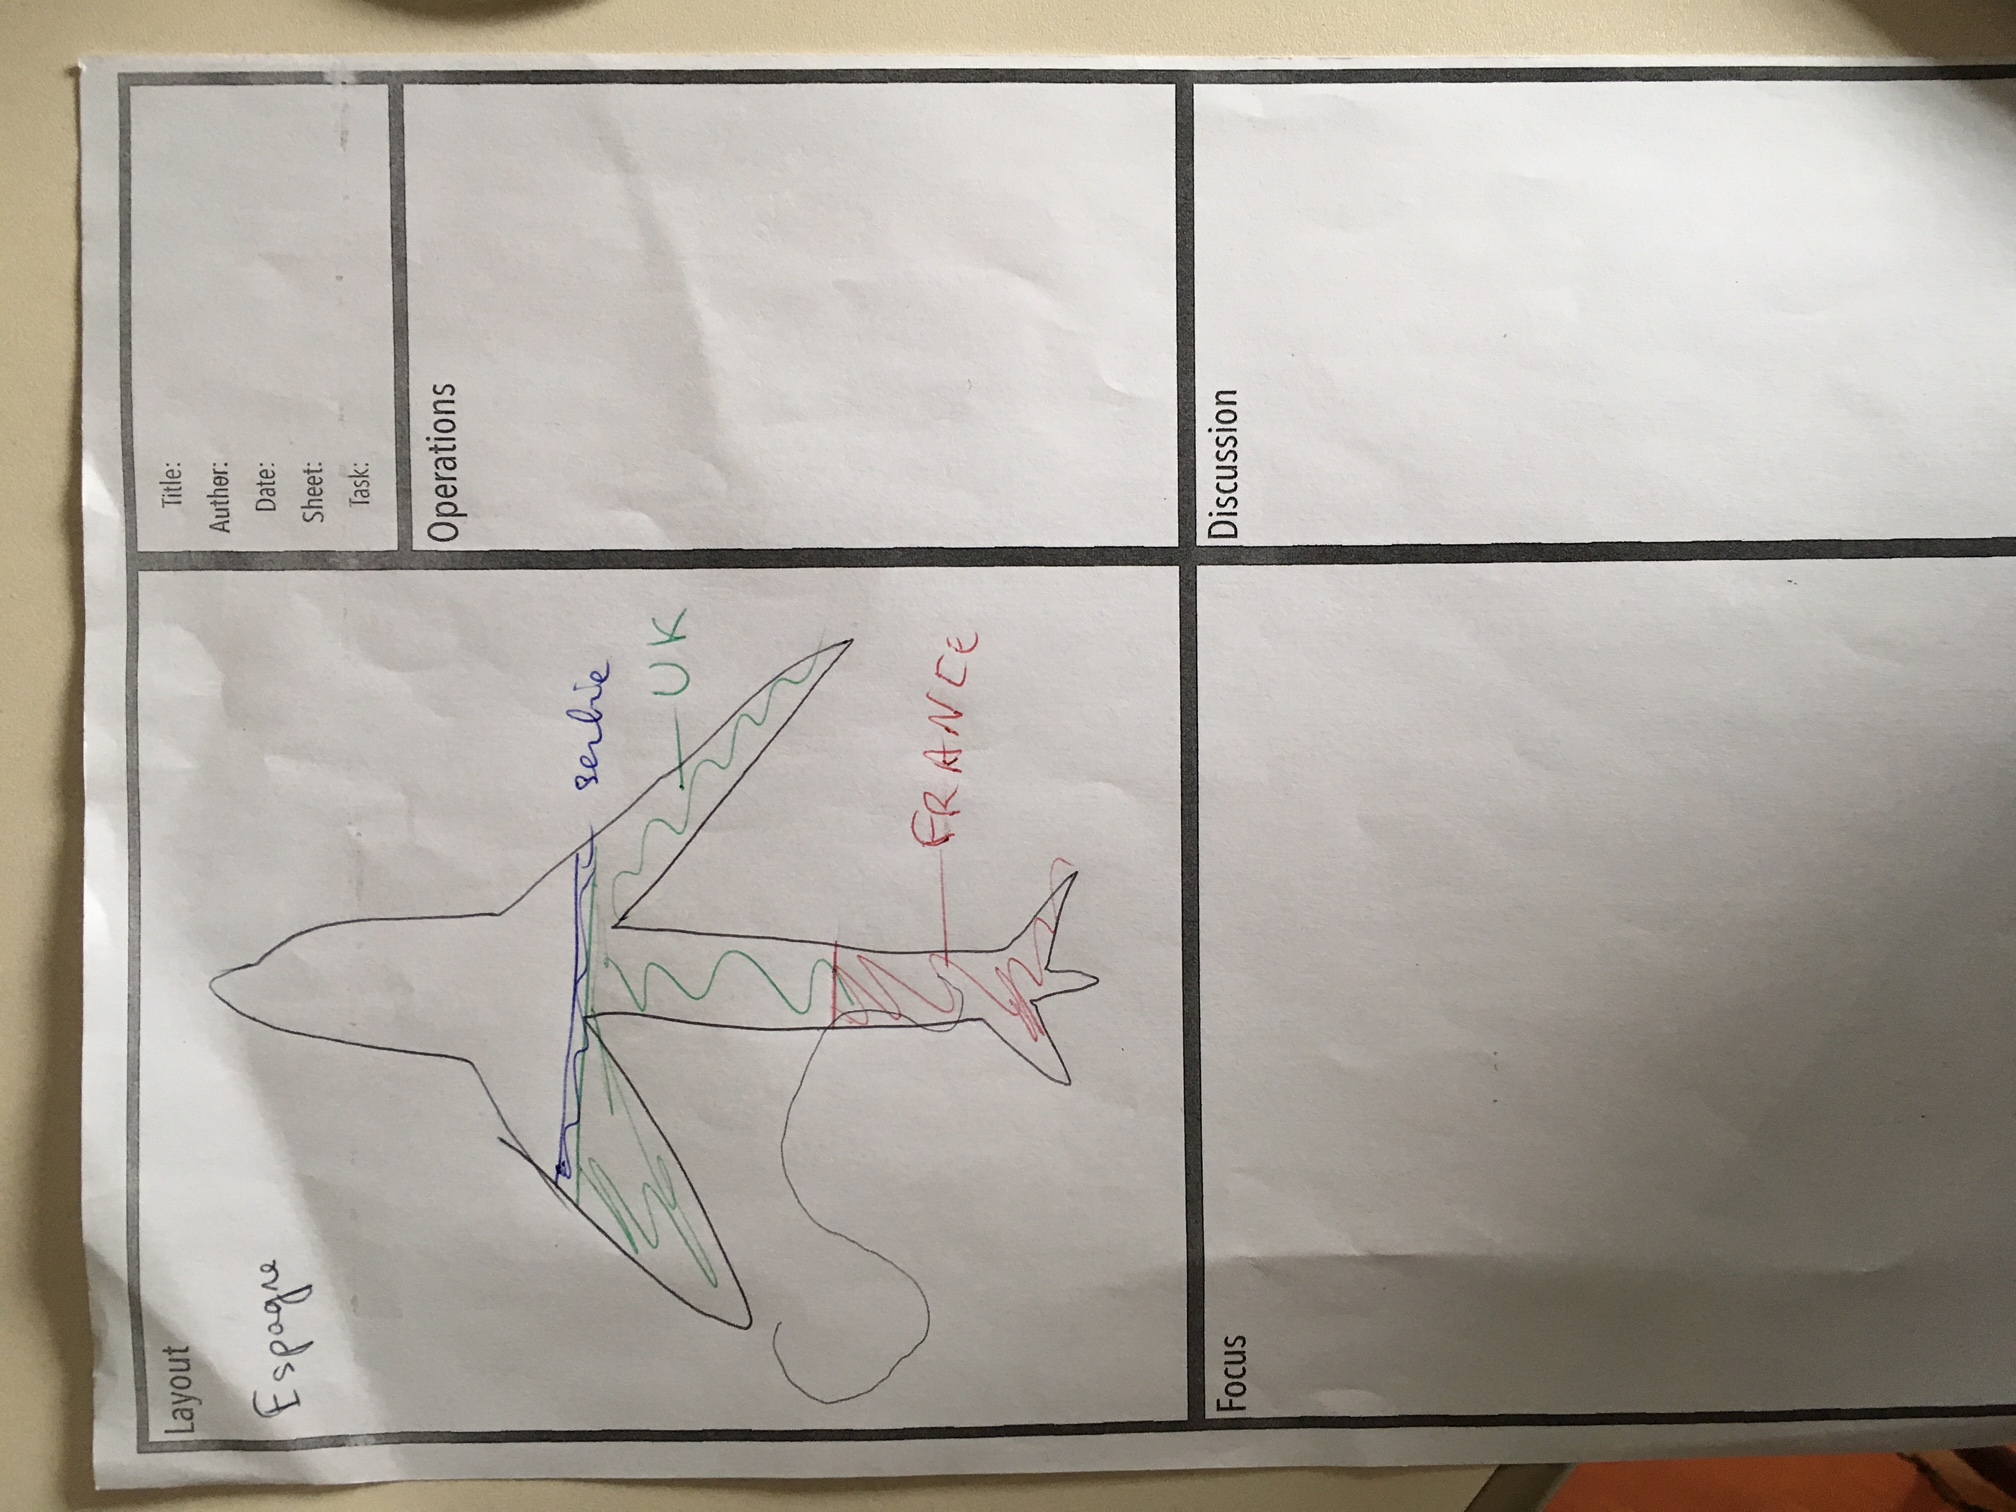 Layout
Espagne
serbie
UK
FRANCE
Title:
Author:
Date:
Sheet:
Task:
Operations
Focus
Discussion